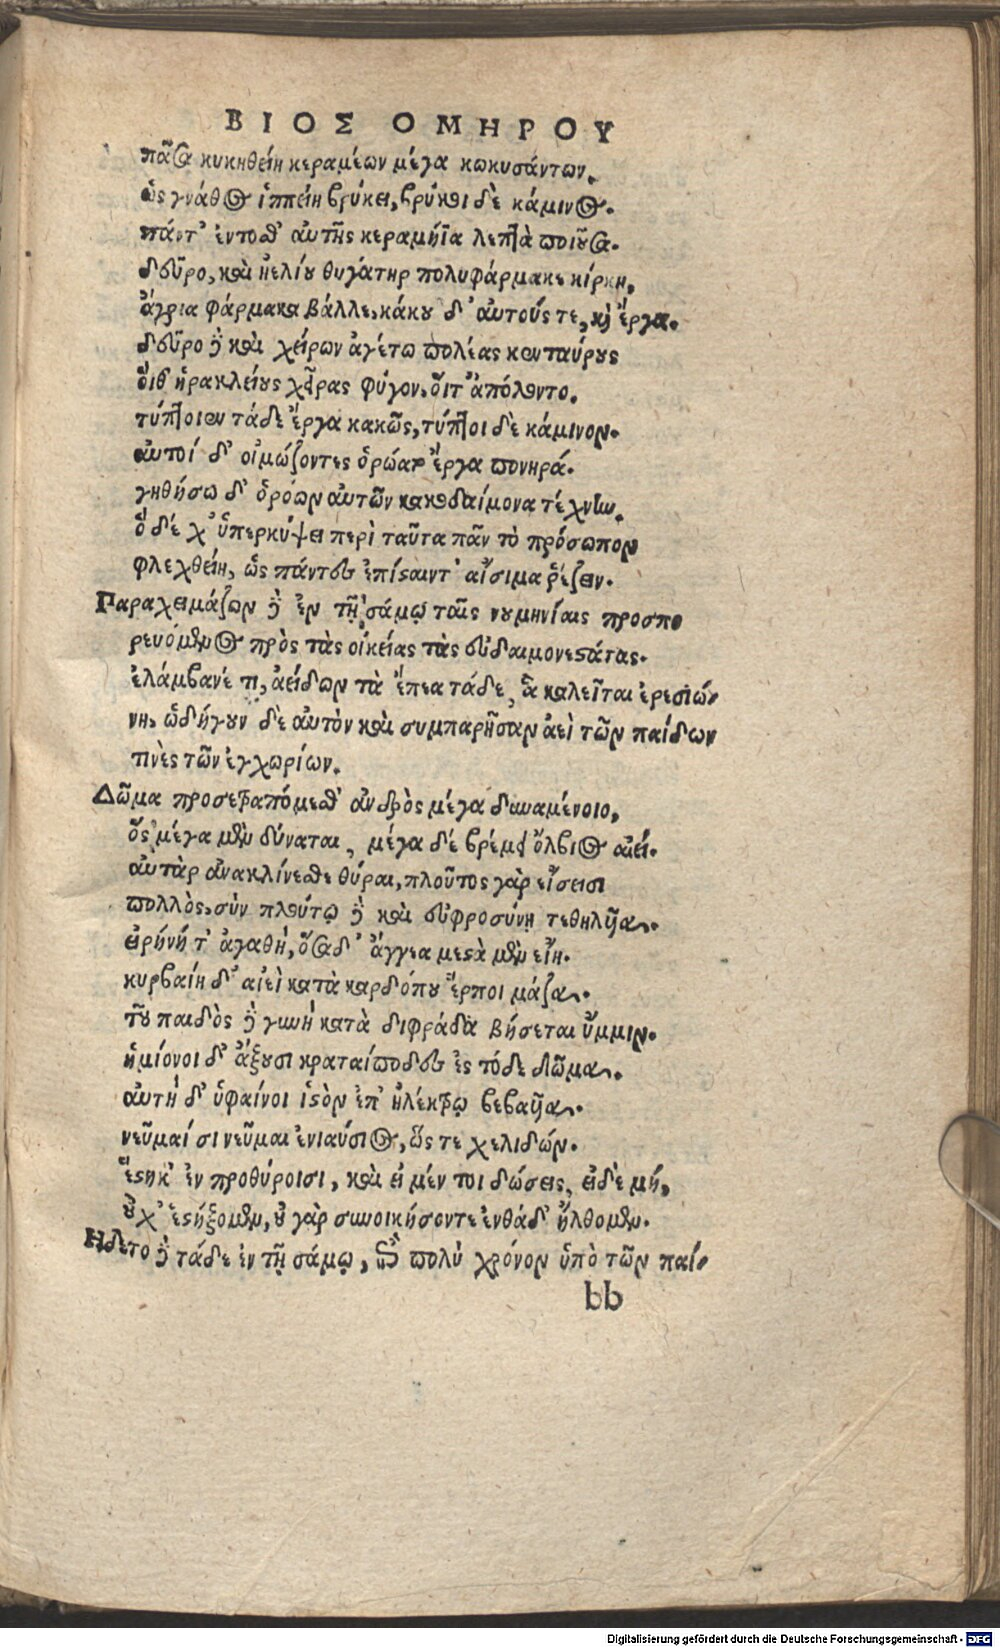 ΒΙΟΣ ΟΜΗΡΟΥ
πᾶσα κυκηθείη κεραμέων μέγα κωκυσάντων.
ὡς γνάθος ἱππείη βρύκει, βρύκοι δὲ κάμινος.
πάντ' ἔντοσθ' αὐτῆς κεραμήϊα λεπτὰ ποιοῦσα.
δεῦρο, καὶ ἠελίου θυγάτηρ πολυφάρμακε κίρκη,
ἄγρια φάρμακα βάλλε, κάκου δ' αὐτούς τε, καὶ ἔργα.
δεῦρο δὲ καὶ χείρων ἀγέτω πολέας κενταύρους
οἵθ' ἡρακλείους χεῖρας φύγον, οἵτ' ἀπόλοντο.
τύπτοιεν τάδε ἔργα κακῶς, τύπτοι δὲ κάμινον.
αὐτοὶ δ' οἰμώζοντες ὁρώατ ἔργα πονηρά.
γηθήσω δ' ὁρόων αὐτῶν κακοδαίμονα τέχνην.
ὃ δέ χ' ὑπερκύψει περὶ ταῦτα πᾶν τὸ πρόσωπον
φλεχθείη, ὡς πάντες ἐπίσταιντ' αἴσιμα ῥέζειν.
Παραχειμάζων δὲ ἐν τῇ σάμῳ ταῖς νουμηνίαις προσπο
ρευόμενος πρὸς τὰς οἰκείας τὰς εὐδαιμονεστάτας.
ἐλάμβανέ τι, ἀείδων τὰ ἔπεα τάδε, ἃ καλεῖται ἐρεσιώ-
νη, ὡδήγουν δὲ αὐτὸν καὶ συμπαρῆσαν ἀεὶ τῶν παίδων
τινὲς τῶν ἐγχωρίων.
Δῶμα προσετραπόμεσθ' ἀνδρὸς μέγα δυναμένοιο,
ὃς μέγα μὲν δύναται, μέγα δὲ βρέμει ὄλβιος αἰεί.
αὐτὰρ ἀνακλίνεσθε θύραι, πλοῦτος γὰρ εἴσεισι
πολλὸς, σὺν πλούτῳ δὲ καὶ εὐφροσύνη τεθηλυῖα.
εἰρήνη τ' ἀγαθή, ὅσα δ' ἄγγεα μεστὰ μὲν εἴη.
κυρβαίη δ' αἰεὶ κατὰ καρδόπου ἕρποι μάζα.
τοῦ παιδὸς δὲ γυνὴ κατὰ διφράδα βήσεται ὔμμιν.
ἡμίονοι δ' ἄξουσι κραταίποδες ἐς τόδε δῶμα.
αὐτὴ δ' ὑφαίνοι ἱστὸν ἐπ' ἠλέκτρῳ βεβαυῖα.
νεῦμαί σι νεῦμαι ἐνιαύσιος, ὥς τε χελιδών.
ἕστηκ' ἐν προθύροισι, καὶ εἰ μέν τοι δώσεις, εἰ δὲ μή,
οὐχ' ἑστήξομεν, οὐ γὰρ συνοικήσοντε ἐνθάδ' ἤλθομεν.
Ηδετο δὲ τάδε ἐν τῇ σάμῳ, ἐπὶ πολὺ χρόνον ὑπὸ τῶν παί-
bb
Digitalisierung gefördert durch die Deutsche Forschungsgemeinschaft - DFG